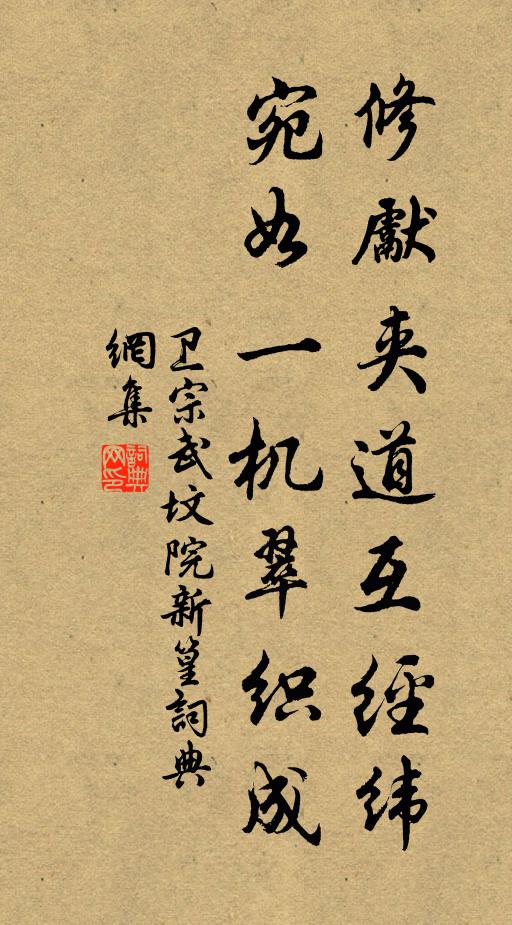 修獻夹道互經纬
宛如一机翠织成
卫宗武坟院新篁詞典
網集
詞典
网印